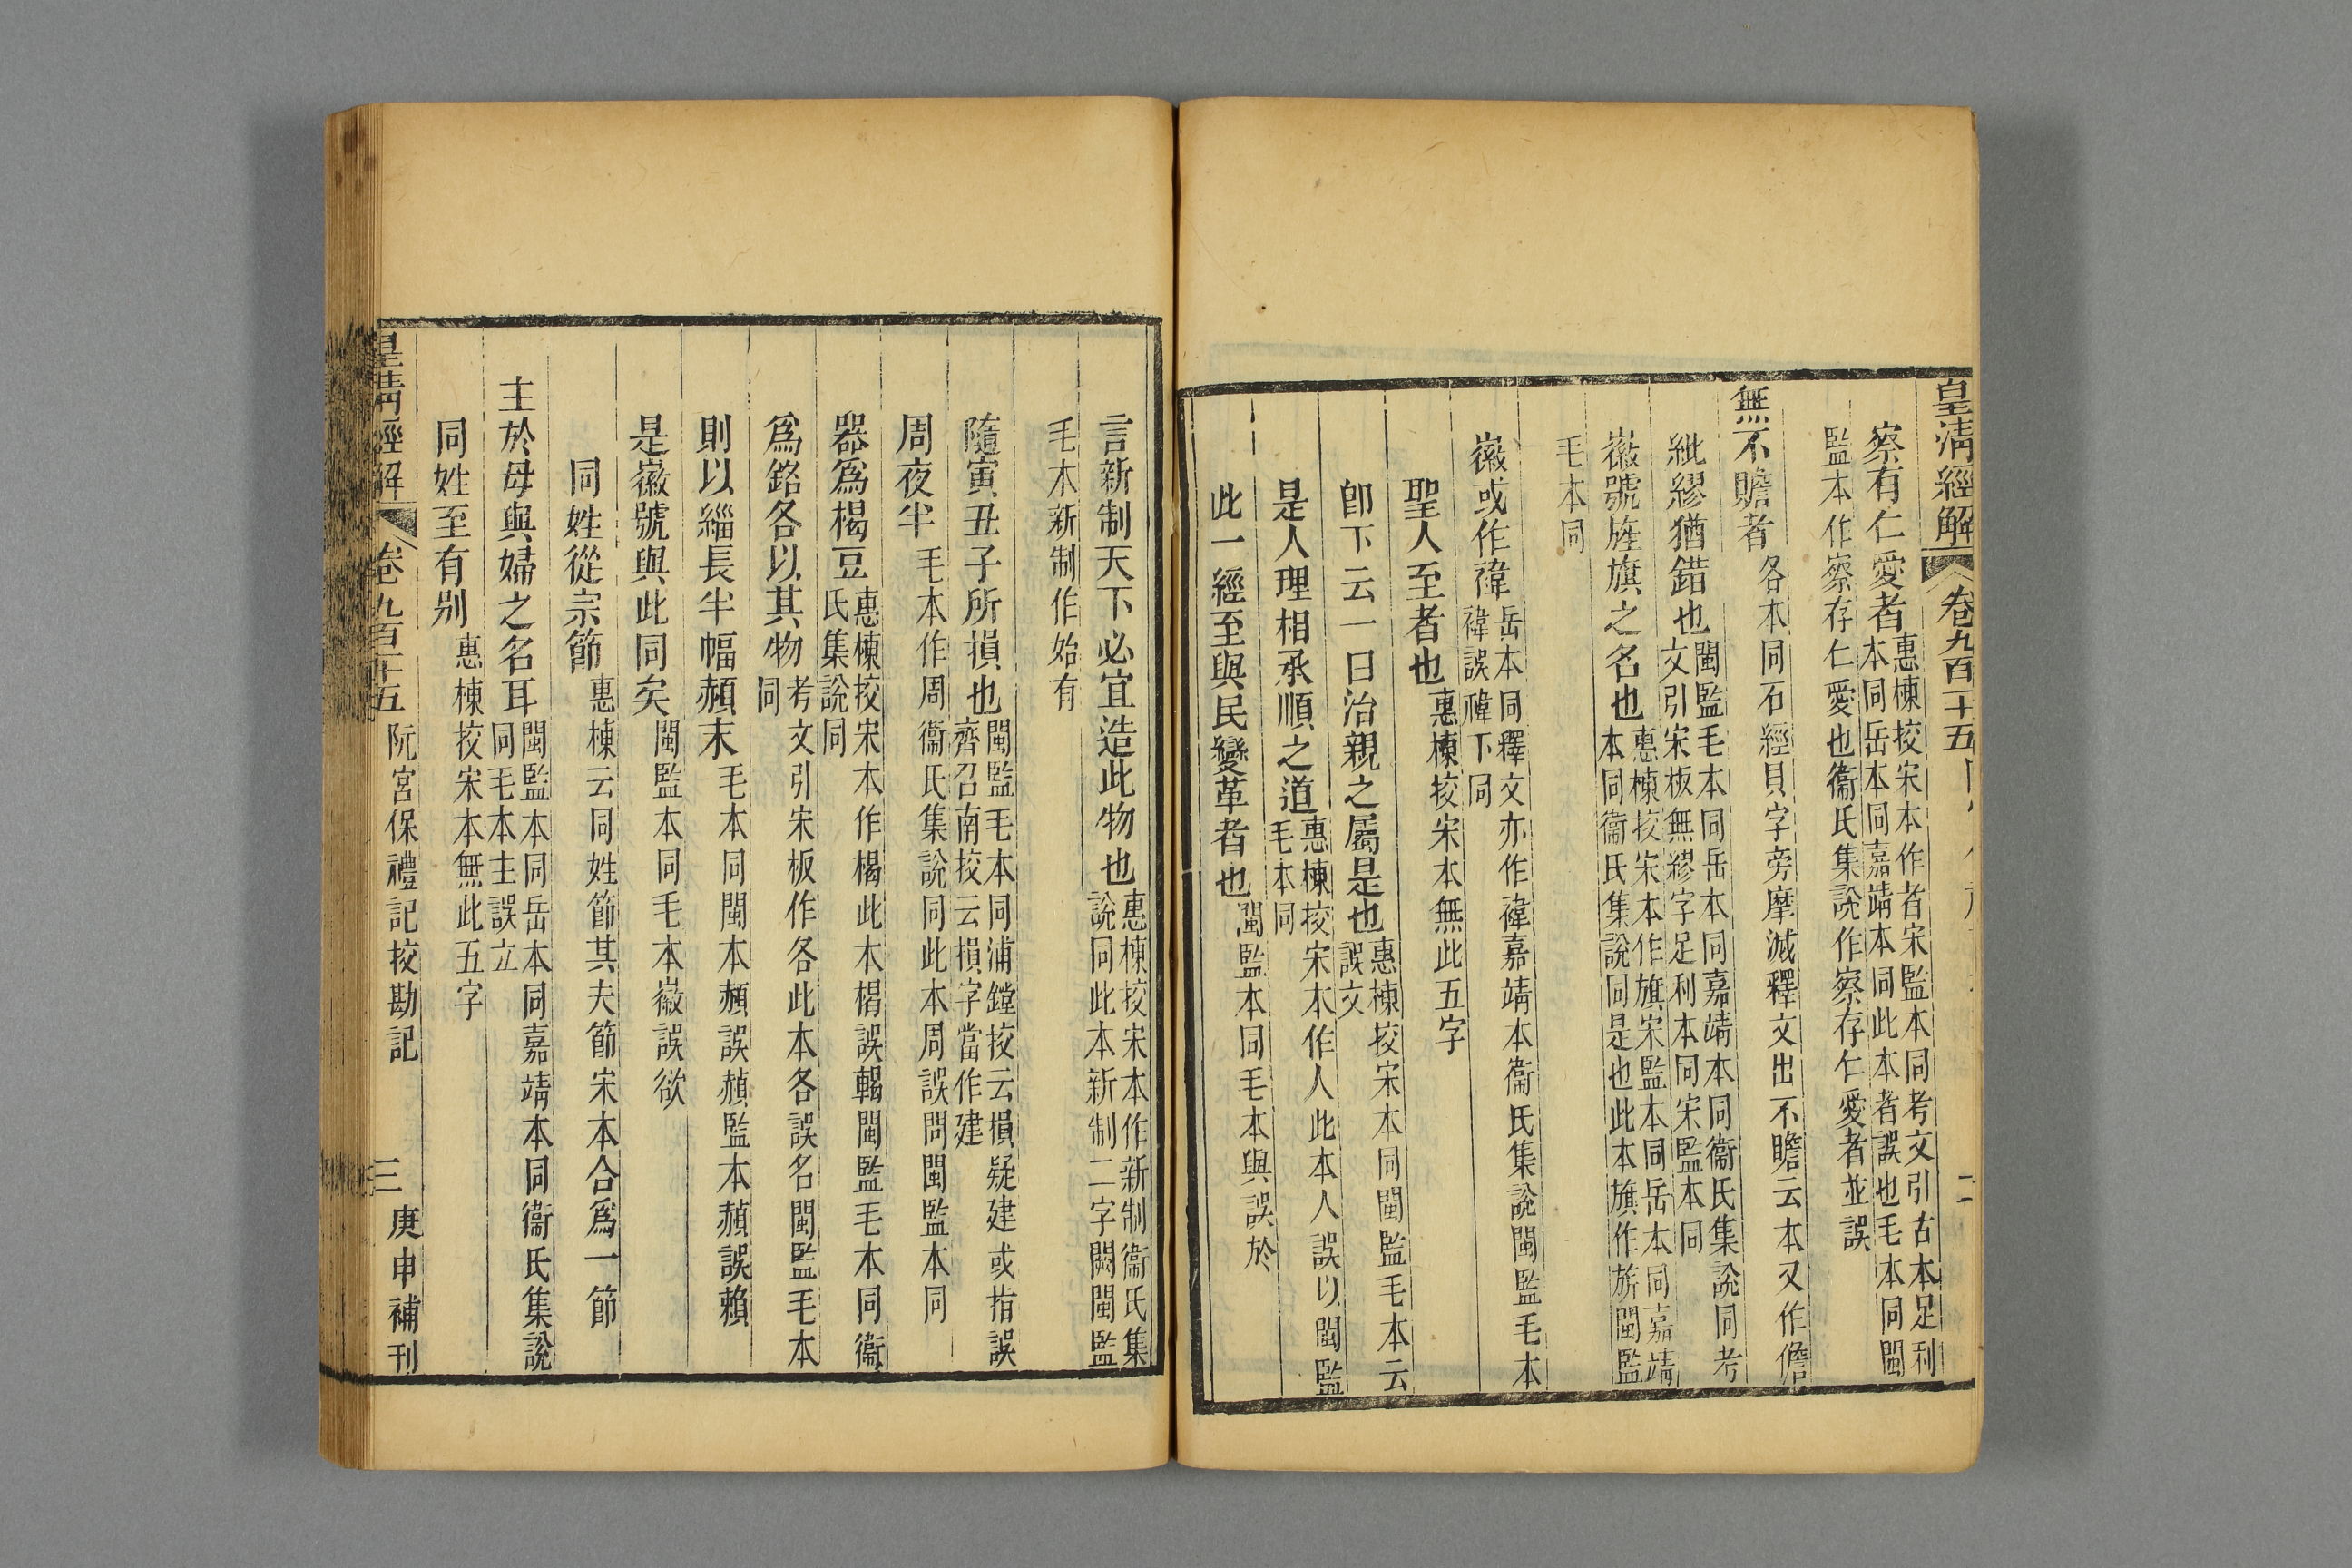 皇清經解 卷九百二十五 二
察有仁愛者惠棟挍宋本作者宋監本同考文引古本足利本同岳本同嘉靖本同此本者誤也毛本同閩
監本作察存仁愛也衞氏集說作察存仁愛者並誤
無不贍者各本同石經貝字旁摩滅釋文出不瞻云本又作儋
紕繆猶錯也閩監毛本同岳本同嘉靖本同衞氏集說同考文引宋板無繆字足利本同宋監本同
徽號旌旗之名也惠棟挍宋本作旗宋監本同岳本同嘉靖本同衞氏集說同是也此本旗作旂閩監
毛本同
徽或作褘岳本同釋文亦作褘嘉靖本衞氏集說閩監毛本褘誤禕下同
聖人至者也惠棟挍宋本無此五字
卽下云一曰治親之屬是也惠棟挍宋本同閩監毛本云誤文
是人理相承順之道惠棟挍宋本作人此本人誤以閩監毛本同
此一經至與民變革者也閩監本同毛本與誤於
言新制天下必宜造此物也惠棟挍宋本作新制衞氏集說同此本新制二字闕閩監
毛本新制作始有
隨寅丑子所損也閩監毛本同浦鏜挍云損疑建或指誤齊召南挍云損字當作建
周夜半毛本作周衞氏集說同此本周誤問閩監本同
器爲楬豆惠棟挍宋本作楬此本楬誤輵閩監毛本同衞氏集說同
爲銘各以其物考文引宋板作各此本各誤名閩監毛本同
則以緇長半幅赬末毛本同閩本赬誤赪監本赬誤賴
是徽號與此同矣閩監本同毛本徽誤欲
同姓從宗節惠棟云同姓節其夫節宋本合爲一節
主於母與婦之名耳閩監本同岳本同嘉靖本同衞氏集說同毛本主誤立
同姓至有别惠棟挍宋本無此五字
皇清經解 卷九百二十五 阮宮保禮記挍勘記 三 庚申補刊